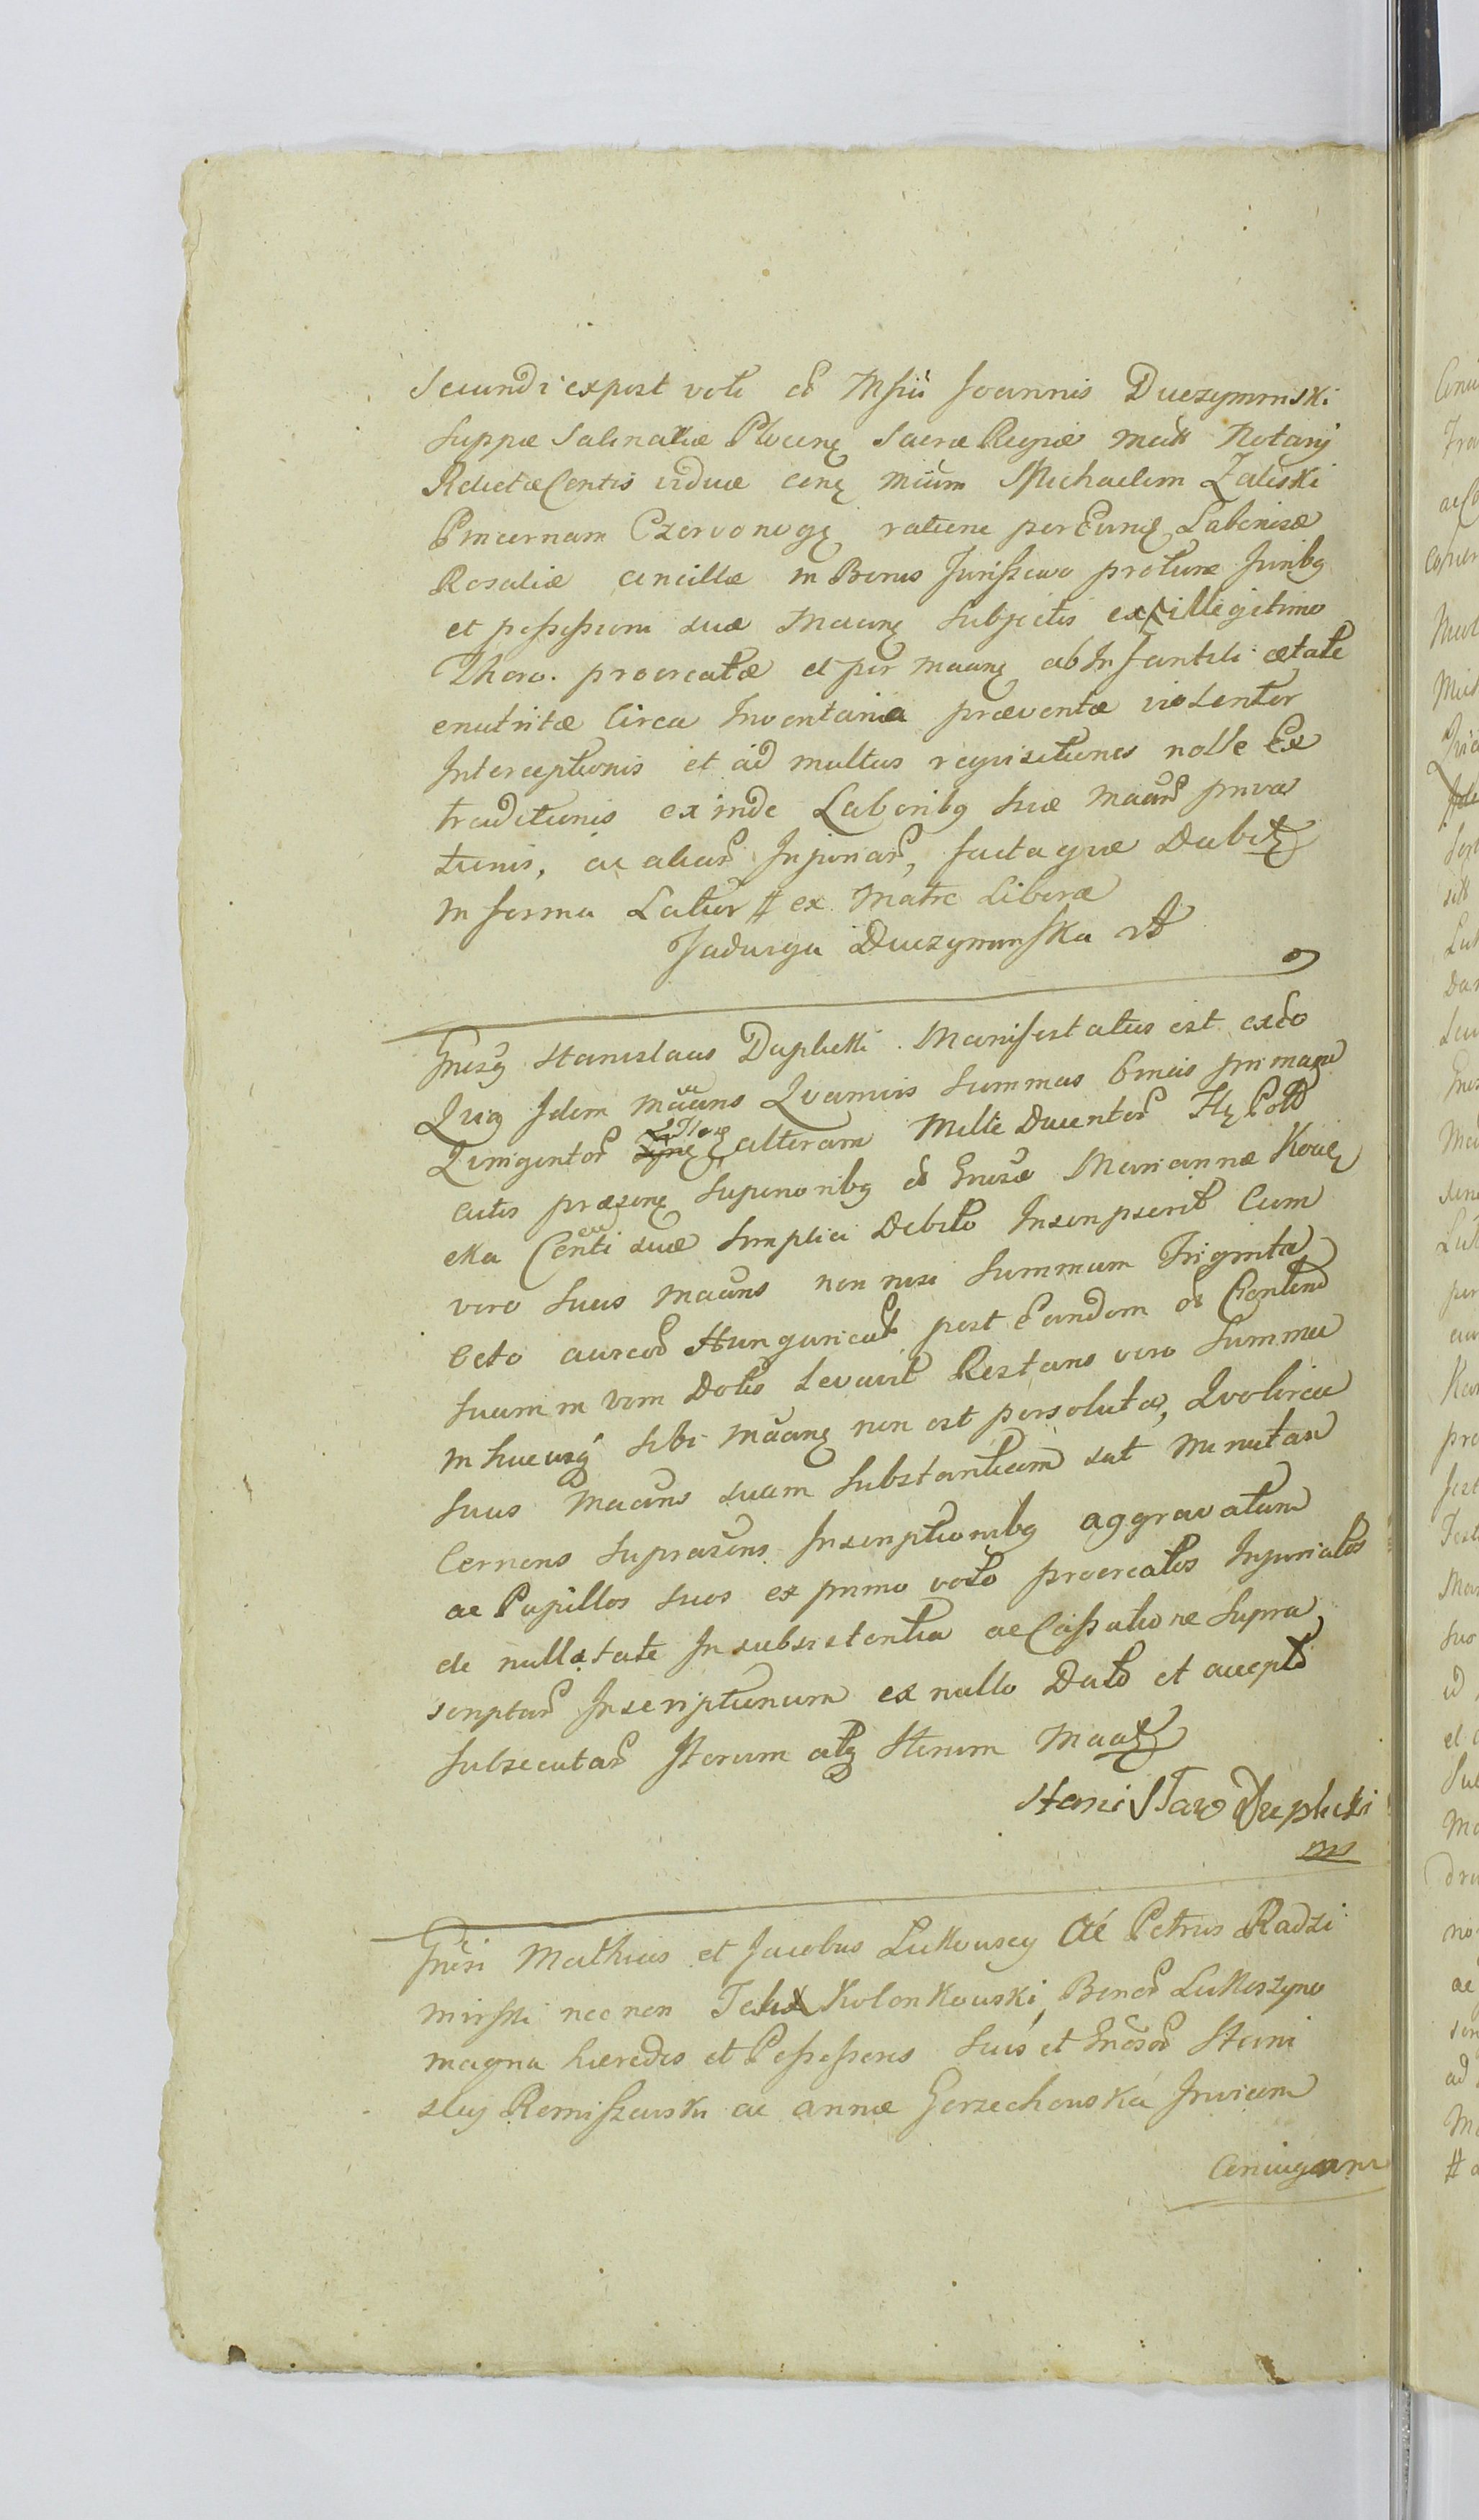 Secundi expost voti cõ Msii Joannis Duczyminski
Suppæ Salinariæ Plocen Sacræ Regiæ mctt Notarÿ
Relictæ Contis viduæ conę mium Michaelem Zaliski
Pincernam Czervonogę ratione per Eunę Laboriosæ
Rosaliæ ancillæ in Bonis Juriszewo proture Juribq
et possessioni suæ Maanę Subjectis ex illegitimo
Thoro procreatæ et per maanę ab Infantili ætate
enutritæ Circa Inventaria præventæ violenter
Interceptionis et ad multas requisitiones nolle Ex
traditionis exinde Laboribq suæ Maanę priva
tionis, ac aliar Injuriar, factaque Dabit
in forma Latior # ex Matre Libera
Jadwyga Duczyminska
Gnesq Stanislaus Duplicki Manifestatus est exeo
Quia Idem Maans Quamvis Summas binas primam
Quingentor alteram Mille Ducentor Flę Poll
cutis præsenę Superioribq cõ Gnosæ Mariannæ Kove
cka Conti suæ Simplici Debito Inscripserit Cum
vero Suus Maans non nisi Summam Triginta
Octo aureor Hungarical post Eandem cõ Contem
Suam in vim Dotis Levavit Restans vero Summa
in hucusq sibi maanę non est persoluta, Quocirca
Suus Maans suam Substantiam sat minutam
Cernens Suprasens Inscriptionibq aggravatam
ac Pupillos suos ex primo voto procreatos Injuriatos
de nullitate Insubsistentia ac Cassatione Supra
scriptar Inscriptionum ex nullo Dato et accepto
subsecutar Iterum atq Iterum Maat
Stanisław Duplicki
mp
Gnesi Mathias et Jacobus Lukowscy Ac Petrus Radzi
mirski nec non Felix Kolonkowski, Bonor Lukoszyno
magna hæredes et Possessores Suis et Gnosor Stani
slaj Romiszewski ac annæ Gorzechowska Invicem
Coniugum